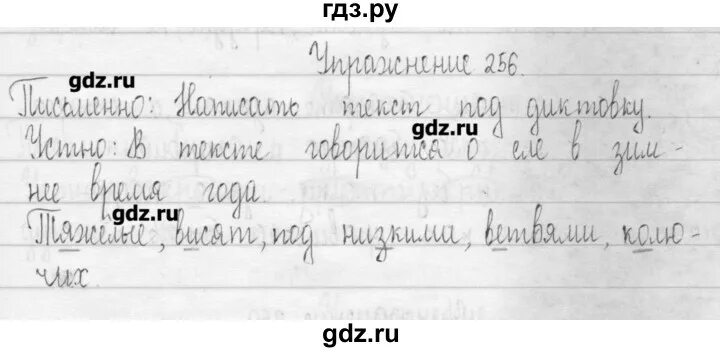 гдз.ру
Упражнение 256.
gdz.ru
Письменно: Написать текст под диктовку.
gdz.ru
Устно: В тексте говорится о еле в зим-
нее время года.
gdz.ru
Тяжёлые, висят, под низкими, ветвями, колю-
чих.
gdz.ru